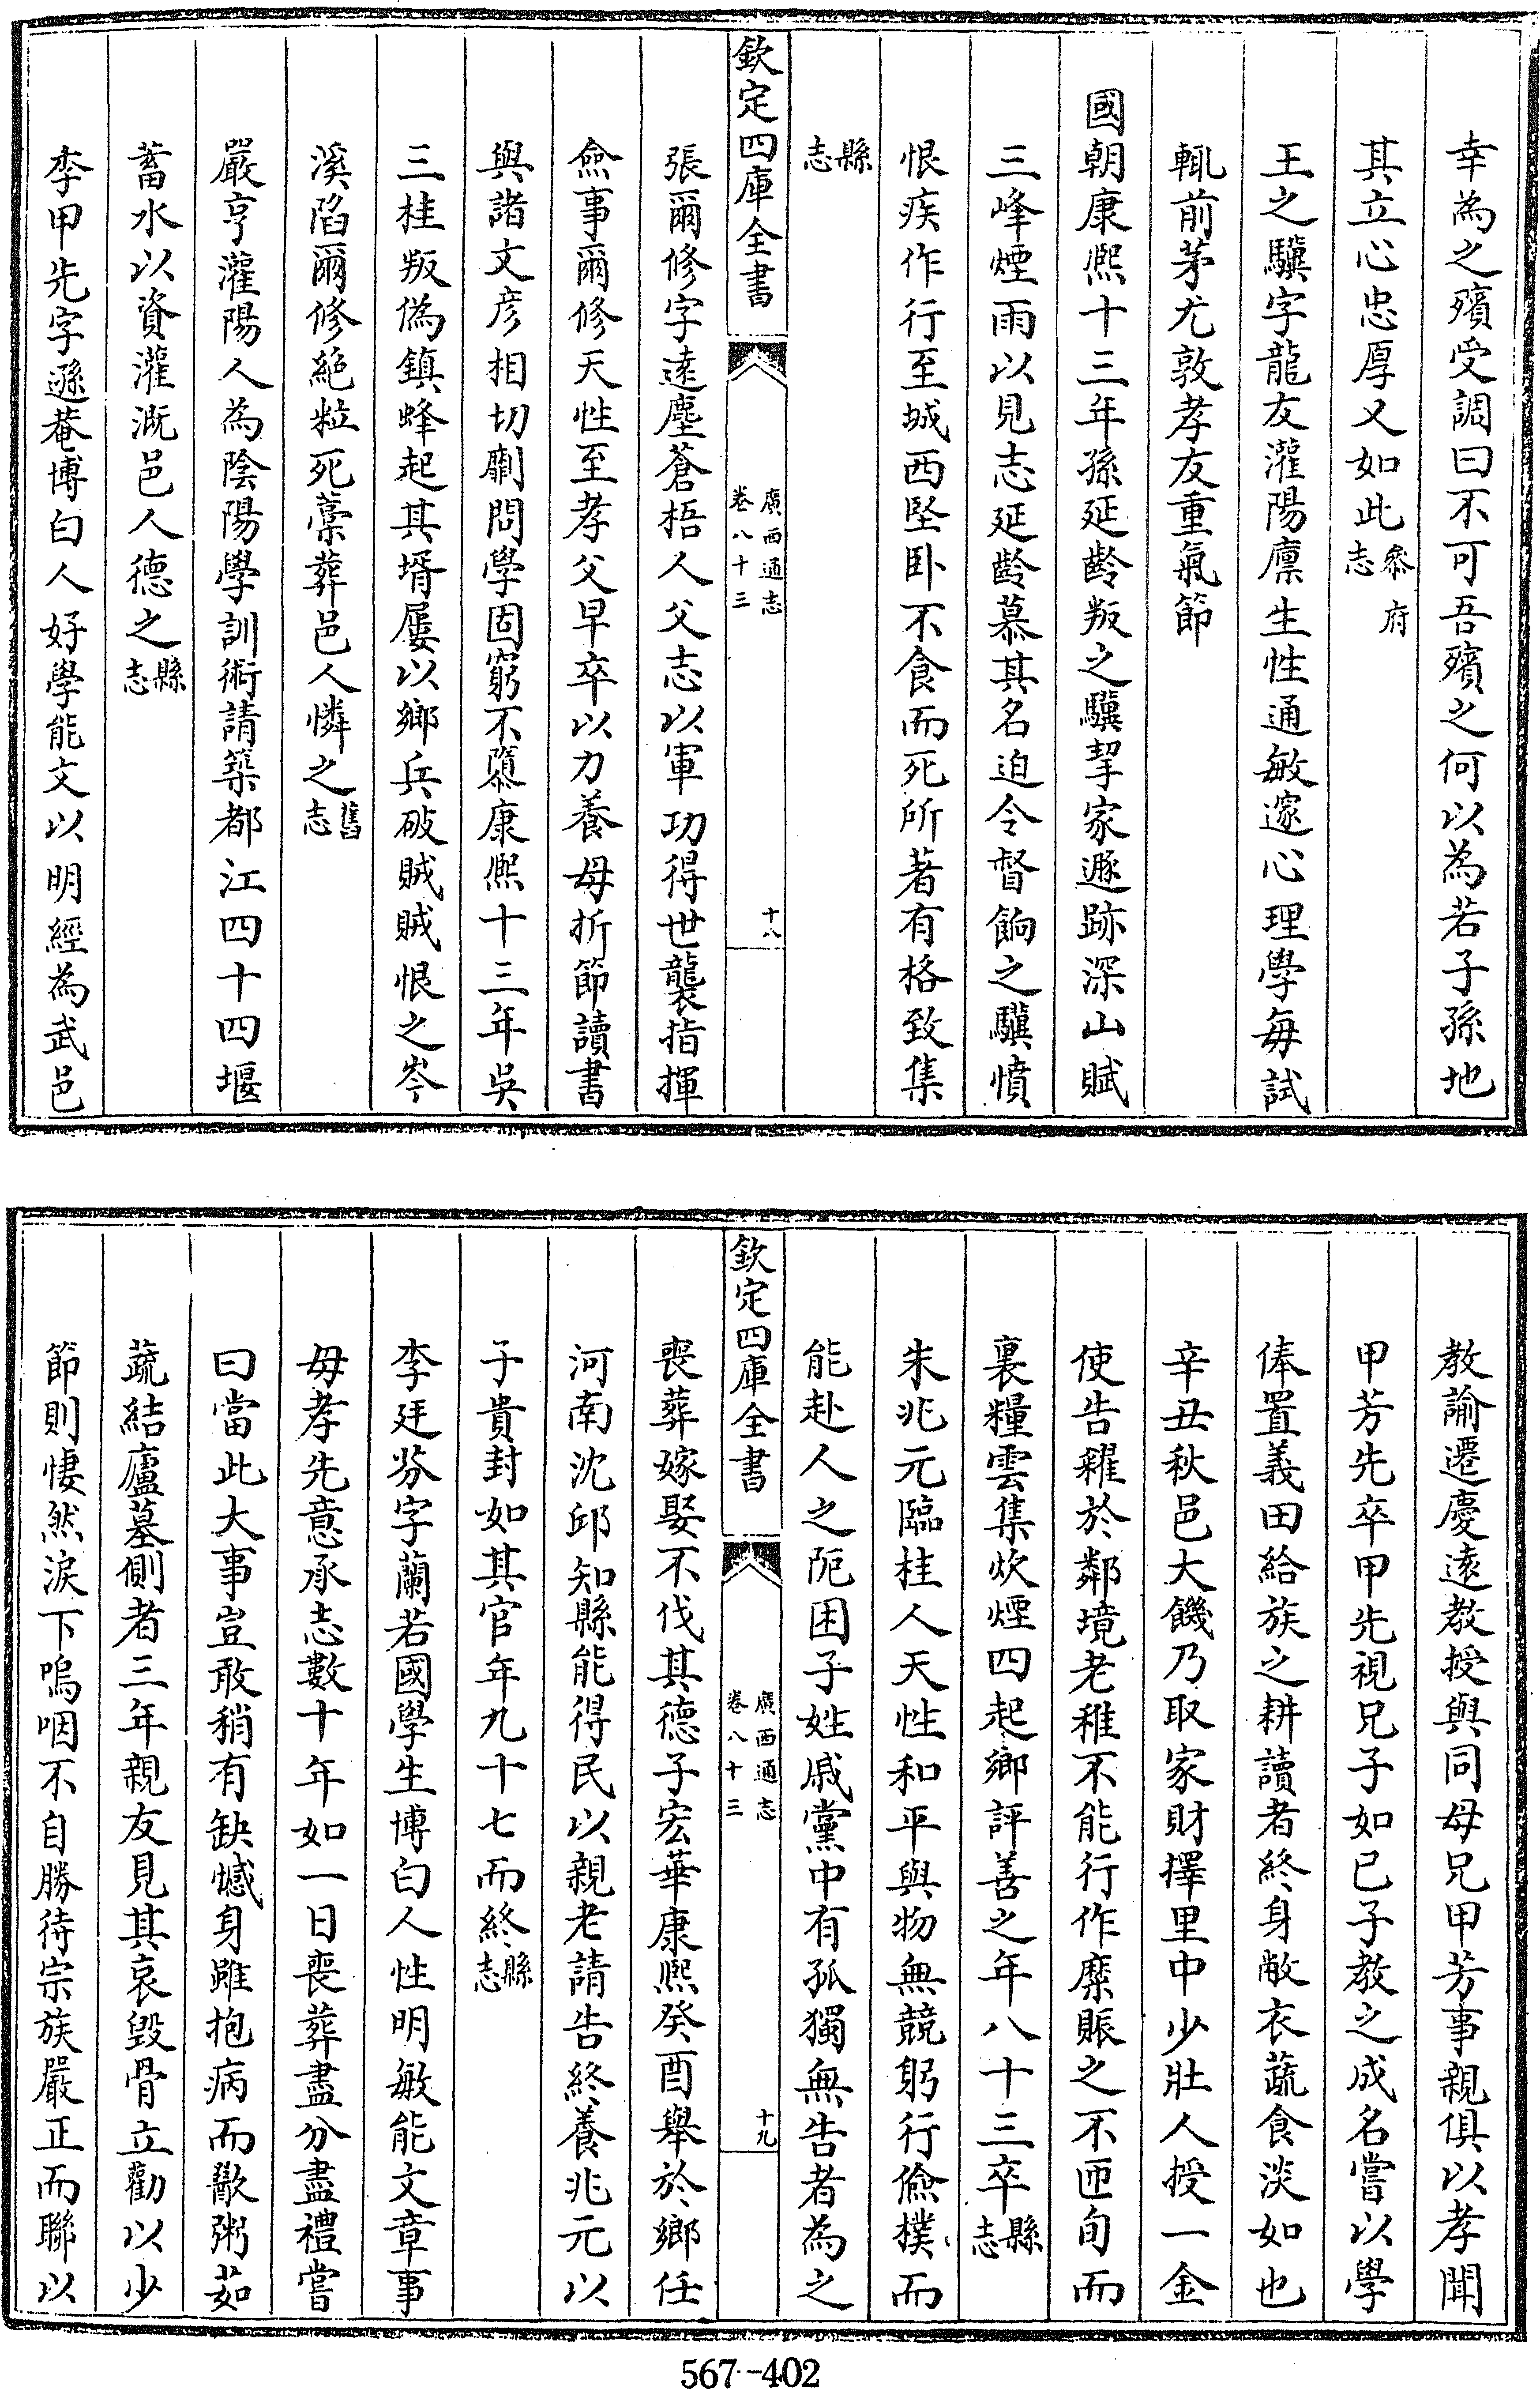 幸為之殯受調曰不可吾殯之何以為若子孫地
其立心忠厚又如此叅府志
王之驥字龍友灌陽廪生性通敏邃心理學每試
輒前茅尤敦孝友重氣節
國朝康熙十三年孫延齡叛之驥挈家遯跡深山賦
三峰煙雨以見志延齡慕其名迫令督餉之驥憤
恨疾作行至城西堅卧不食而死所著有格致集
縣志
欽定四庫全書
廣西通志
卷八十三
十八
張爾修字遠塵蒼梧人父志以軍功得世襲指揮
僉事爾修天性至孝父早卒以力養母折節讀書
與諸文彦相切劘問學固窮不隳康熙十三年吳
三桂叛偽鎮蜂起其壻屢以鄉兵破賊賊恨之岑
溪陷爾修絶粒死藁葬邑人憐之舊志
嚴亨灌陽人為陰陽學訓術請築都江四十四堰
蓄水以資灌溉邑人德之縣志
李甲先字遜菴博白人好學能文以明經為武邑
教諭遷慶遠教授與同母兄甲芳事親俱以孝聞
甲芳先卒甲先視兄子如已子教之成名嘗以學
俸置義田給族之耕讀者終身敝衣蔬食淡如也
辛丑秋邑大饑乃取家財擇里中少壯人授一金
使告糴於鄰境老稚不能行作糜賬之不匝旬而
裏糧雲集炊煙四起鄉評善之年八十三卒縣志
朱兆元臨桂人天性和平與物無競躬行儉樸而
能赴人之阨困子姓戚黨中有孤獨無告者為之
欽定四庫全書
廣西通志
卷八十三
十九
喪葬嫁娶不伐其德子宏華康熙癸酉舉於鄉任
河南沈邱知縣能得民以親老請告終養兆元以
子貴封如其官年九十七而終縣志
李廷芬字蘭若國學生博白人性明敏能文章事
母孝先意承志數十年如一日喪葬盡分盡禮嘗
曰當此大事豈敢稍有缺憾身雖抱病而歠粥茹
蔬結廬墓側者三年親友見其哀毀骨立勸以少
節則悽然淚下嗚咽不自勝待宗族嚴正而聯以
567-402